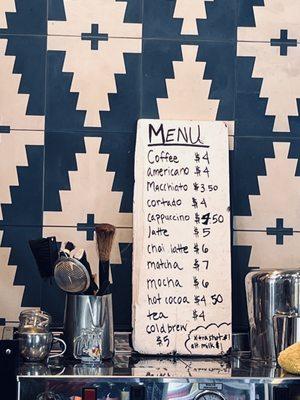 MENU
Coffee $4
americano $4
Macchiato $3.50
cortado $4
cappuccino $4.50
latte $5
chai latte $6
matcha $7
mocha $6
hot cocoa $4.50
tea $4
cold brew
$5
xtra shot $1
alt milk $1